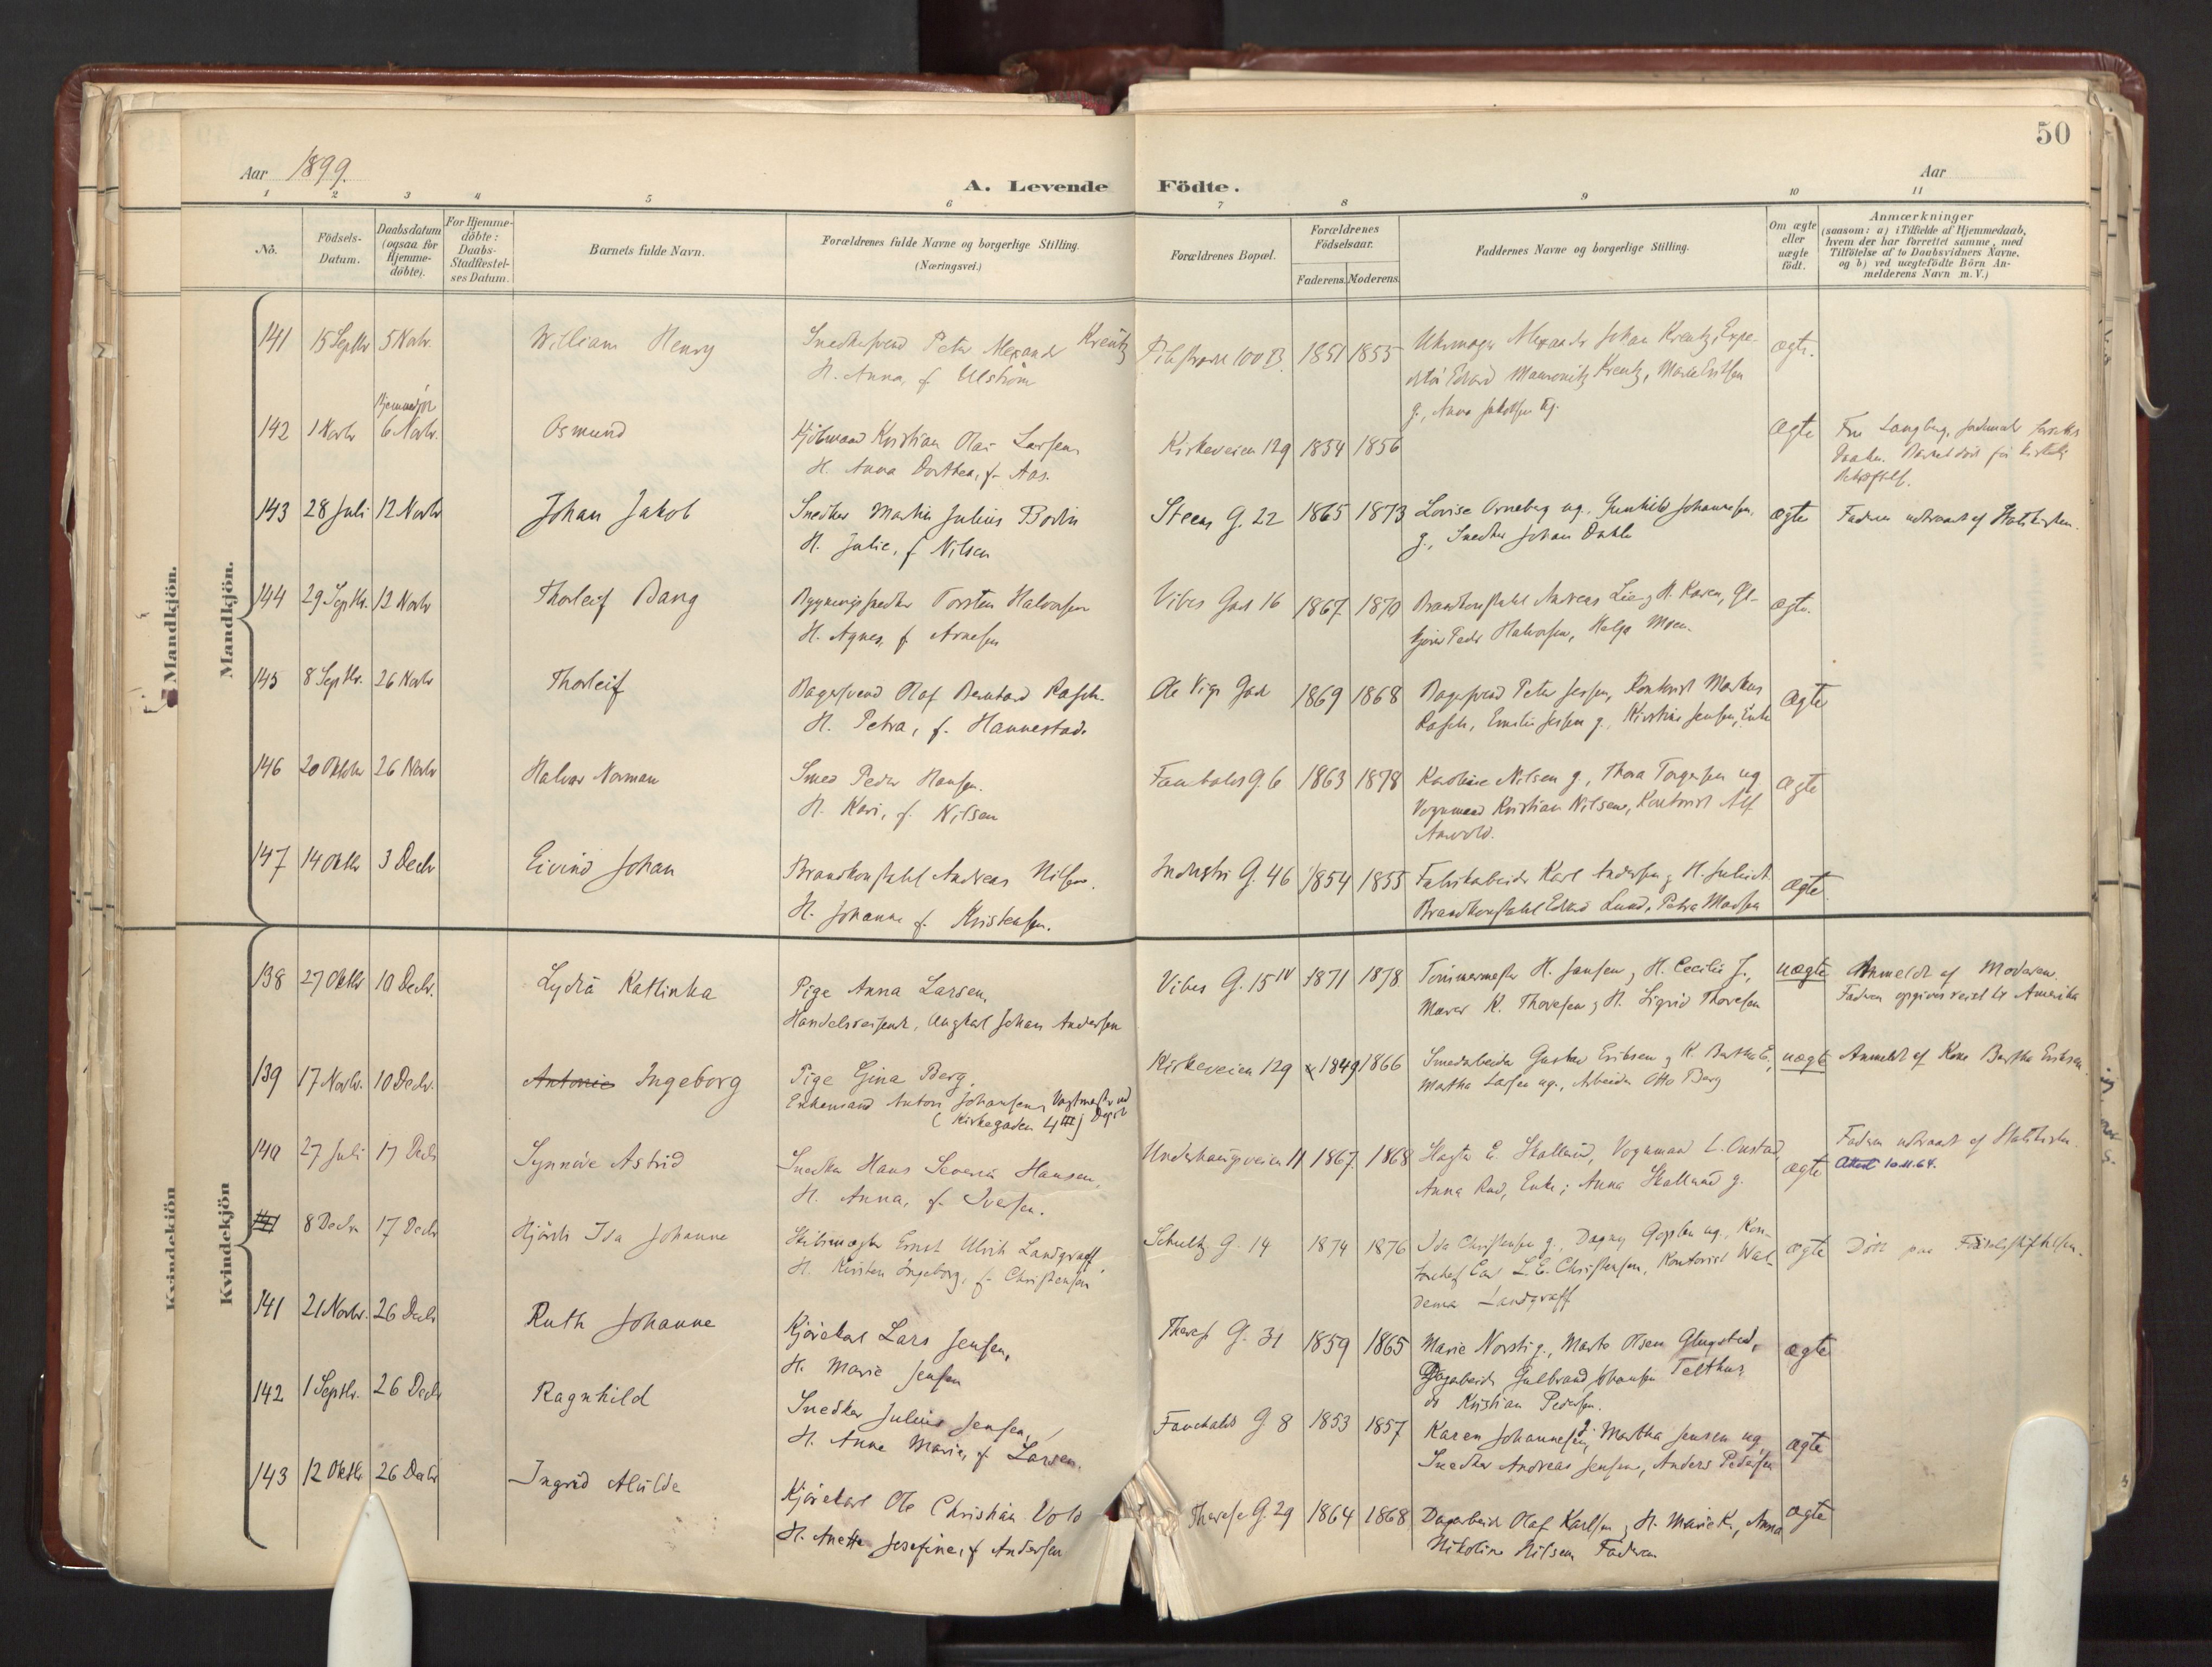 50
Aar 1899.
A. Levende Födte.
Aar
1 2 3 4 5 6 7 8 9 10 11
No.
Födsels-Datum.
Daabsdatum (ogsaa for Hjemme-döbte).
For Hjemme-döbte: Daabs-Stadfæstel-ses Datum.
Barnets fulde Navn.
Forældrenes fulde Navne og borgerlige Stilling. (Næringsvei.)
Forældrenes Bopæl.
Forældrenes Födselsaar.
Faderens. Moderens.
Faddernes Navne og borgerlige Stilling.
Om ægte eller uægte födt.
Anmærkninger (saasom: a) i Tilfælde af Hjemmedaab, hvem der har forrettet samme, med Tilföielse af to Daabsvidners Navne, og b) ved uægtefödte Börn An-melderens Navn m.V.)
Mandkjön.
Mandkjön.
141 15 Septbr 5 Novbr. William Henry Snedkersvend Peter Alexander Kreutz Pilestrædet 100 B. 1851 1855 Uhrmager Alexander Johan Kreutz, Expe- ægte.
H. Anna, f. Ulström
ditör Edvard Kreutz, Marie
g., Anna Jakobsen ug.
Hjemmedöbt
142 1 Novbr 6 Novbr. Osmund Kjöbmand Kristian Olai Larsen Kirkeveien 129 1854 1856 ægte Fru Langberg,
H. Anna Dorthea, f. Aas.
143 28 Juli 12 Novbr Johan Jakob Snedker Martin Julius Bodin Steens G. 22 1865 1873 Lovise Orneberg ug. Gunhild Johannesen ægte Faderen udtraadt af Statskirken.
H. Julie, f. Nilsen
g., Snedker Johan Dahle
144 29 Septbr. 12 Novbr Thorleif Bang Bygningssnedker Torsten Halvorsen Vibes Gad 16 1867 1870 Brandkonstabel Andreas Lie, H. Karen, ægte.
H. Agnes, f. Arnesen
Peder Halvorsen, Helga Moen.
145 8 Septbr. 26 Novbr Thorleif Bagersvend Olaf Bernhard Rasch. Ole Vigs Gade 1869 1868 Bagersvend Peter Jessen, Kontorist Markus ægte
H. Petra, f. Hannestad.
Rasch, Emilie Jessen g., Kirstine Jensen, Enke
146 20 Oktbr 26 Novbr Halvor Norman Smed Peder Hansen. Fauchalds G. 6 1863 1878 Karoline Nilsen g., Thora Torgersen ug ægte
H. Kari, f. Nilsen
Vognmand Kristian Nilsen, Kontorist Alf
147 14 Oktbr 3 Decbr Eivind Johan Brandkonstabel Andreas Nilsen. Industri G. 46 1854 1855 Fabrikarbeider Karl Andersen, H. ægte.
H. Johanne f. Kristensen.
Brandkonstabel Edvard Lund, Petra Madsen
Kvindekjön
Kvindekjön
138 27 Oktbr 10 Decbr. Lydia Kathinka Pige Anna Larsen, Vibes G. 15 IV 1871 1878 Tömmermester H. Jansen, H. Cecilie J., uægte Anmeldt af Moderen.
Handelsreisende, Ungkarl Johan Andersen
Murer K. Thoresen, H. Sigrid Thoresen
Faderen opgives reist til Amerika
139 17 Novbr. 10 Decbr. Antonie Ingeborg Pige Gina Berg. Kirkeveien 129 1849 1866 Smedarbeider Gustav Eriksen, H. Bertha E., uægte Anmeldt af Kone Bertha Eriksen.
Enkemand Anton Johansen, Vagtmester ved
(Kirkegaden 4 III)
Martha Larsen ug., Arbeider Otto Berg
140 27 Juli 17 Decbr Synnöve Astrid Snedker Hans Severin Hansen, Underhaugsveien 11 1867 1868 E. Skallerud, Vognmand L. Onstad ægte Faderen udtraadt af Statskirken.
Attest 10.11.64.
H. Anna, f. Iversen.
Anna Rud, Enke; Anna Skallerud g.
141 8 Decbr 17 Decbr Hjördis Ida Johanne Ernst Ulrik Landgraff, Schultz G. 14 1874 1876 Ida Christensen g., Dagny ug., Kon- ægte Död paa Födselsstiftelsen.
H. Kirsten Ingeborg, f. Christensen
torchef Carl L. E. Christensen, Kontorist Wal-
demar Landgraff
141 21 Novbr. 26 Decbr Ruth Johanne Kjörekarl Lars Jensen, Therese G. 31 1859 1865 Marie g., Olsen ægte
H. Marie Jensen
Dagarbeider Gulbrand Johansen Telthus
do Kristian Pedersen.
142 1 Septbr. 26 Decbr Ragnhild Snedker Julius Jensen, Fauchalds G 8 1853 1857 Karen Johannesen, Martha Jensen ug ægte
H. Anne Marie, f. Larsen.
Snedker Andreas Jensen, Anders Pedersen
143 12 Oktbr. 26 Decbr Ingrid Alvilde Kjörekarl Ole Christian Vold Therese G. 29 1864 1868 Dagarbeider Olaf Karlsen, H. Marie K., Anna ægte
H. Anette Josefine, f Andersen
Nikoline Nilsen Faderen